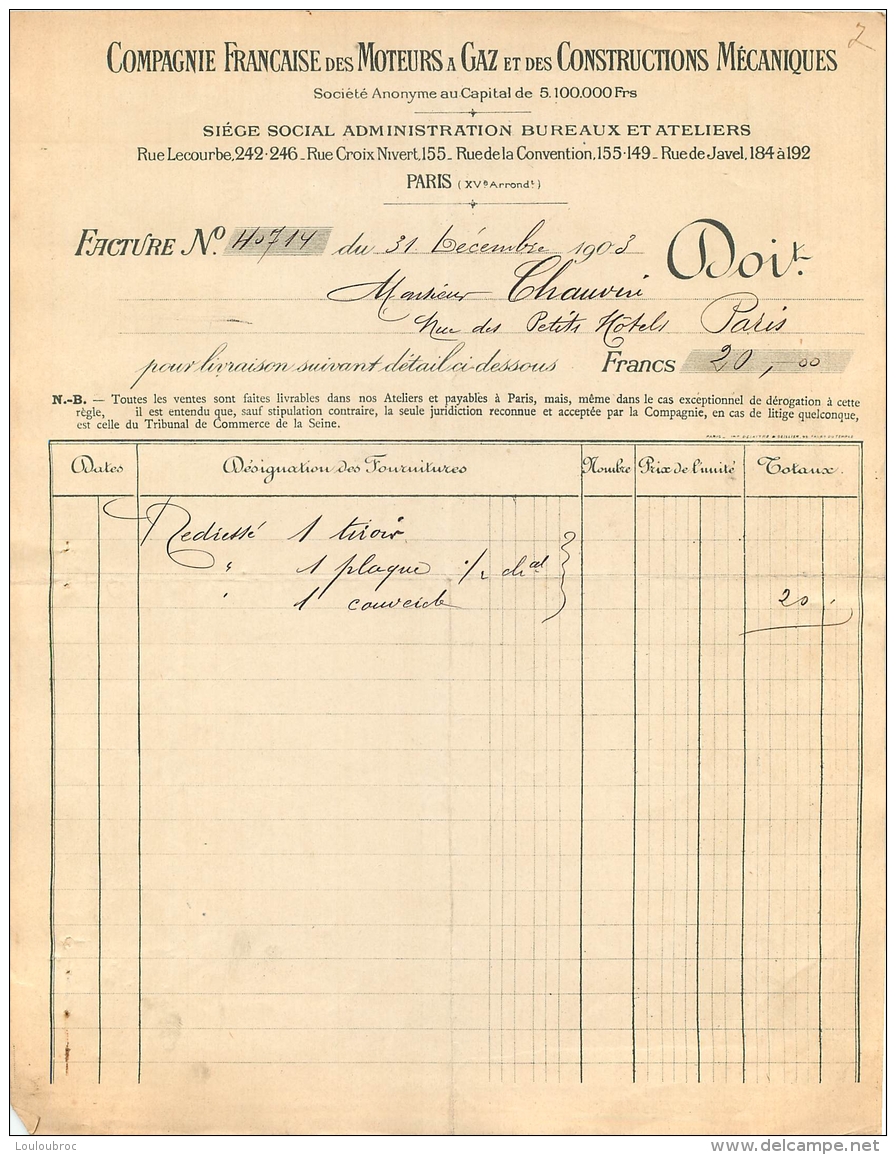 2
COMPAGNIE FRANCAISE DES MOTEURS A GAZ ET DES CONSTRUCTIONS MÉCANIQUES
Société Anonyme au Capital de 5.100.000 Frs
SIÉGE SOCIAL ADMINISTRATION BUREAUX ET ATELIERS
Rue Lecourbe, 242-246_Rue Croix Nivert, 155_Rue de la Convention, 155-149_Rue de Javel, 184 à 192
PARIS (XVe Arrondt)
FACTURE No. 40714 du 31 Décembre 1903 Doit
Monsieur Chauvin
Rue des Petits Hôtels Paris
pour livraison suivant détail ci-dessous Francs 20,00
N.-B. — Toutes les ventes sont faites livrables dans nos Ateliers et payables à Paris, mais, même dans le cas exceptionnel de dérogation à cette
règle, il est entendu que, sauf stipulation contraire, la seule juridiction reconnue et acceptée par la Compagnie, en cas de litige quelconque,
est celle du Tribunal de Commerce de la Seine.
Dates Désignation des Fournitures Nombre Prix de l'unité Totaux
Redressé 1 tiroir
" 1 plaque 1/2 chal
" 1 couvercle 20
Louloubroc
delcampe.net